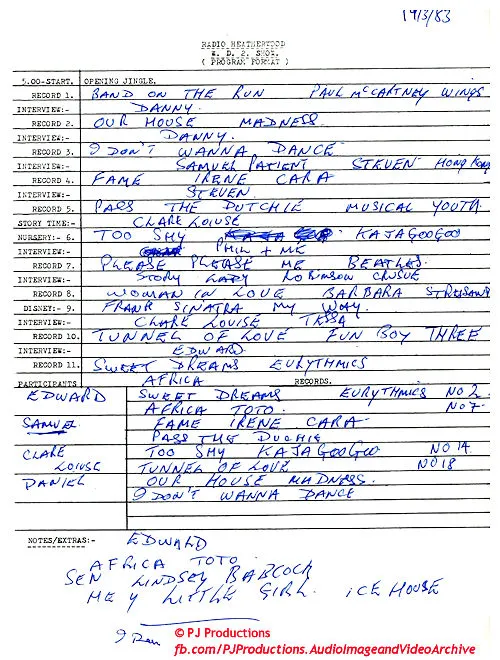 19/3/83
RADIO HEATHERWOOD
W. D. 2. SHOW.
( PROGRAM FORMAT )
5.00-START. OPENING JINGLE.
RECORD 1. BAND ON THE RUN PAUL McCARTNEY WINGS
INTERVIEW:- DANNY.
RECORD 2. OUR HOUSE MADNESS.
INTERVIEW:- DANNY.
RECORD 3. I DON'T WANNA DANCE
INTERVIEW:- SAMUEL PATIENT STEVEN HONG KONG
RECORD 4. FAME IRENE CARA
INTERVIEW:- STEVEN.
RECORD 5. PASS THE DUTCHIE MUSICAL YOUTH
STORY TIME:- CLARE LOUISE
NURSERY:- 6. TOO SHY KAJAGOOGOO
INTERVIEW:- PHIL + ME
RECORD 7. PLEASE PLEASE ME BEATLES.
INTERVIEW:- STORY LADY ROBINSON CRUSUE
RECORD 8. WOMAN IN LOVE BARBARA STREISAND
DISNEY:- 9. FRANK SINATRA MY WAY.
INTERVIEW:- CLARE LOUISE TESSA
RECORD 10. TUNNEL OF LOVE FUN BOY THREE
INTERVIEW:- EDWARD.
RECORD 11. SWEET DREAMS EURYTHMICS
AFRICA
PARTICIPANTS RECORDS.
EDWARD SWEET DREAMS EURYTHMICS NO 2
AFRICA TOTO. NO 7.
SAMUEL FAME IRENE CARA
PASS THE DUCHIE
CLARE LOUISE TOO SHY KAJAGOOGOO NO 14
TUNNEL OF LOVE NO 18
DANIEL OUR HOUSE MADNESS.
I DON'T WANNA DANCE
NOTES/EXTRAS:- EDWARD
AFRICA TOTO.
SEN LINDSEY BABCOCK
HEY LITTLE GIRL. ICE HOUSE
© PJ Productions
fb.com/PJProductions.AudioImageandVideoArchive